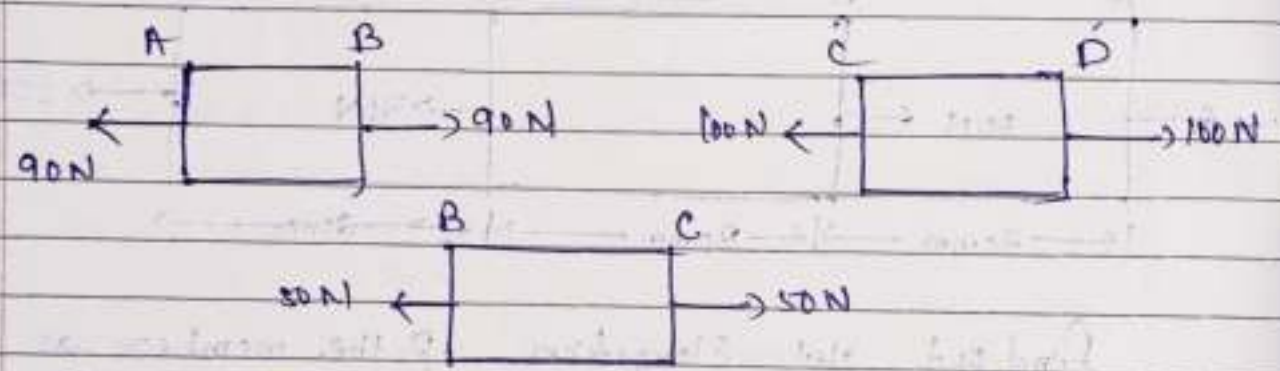 A B C D
90N 90N 100N 100N
B C
50N 50N